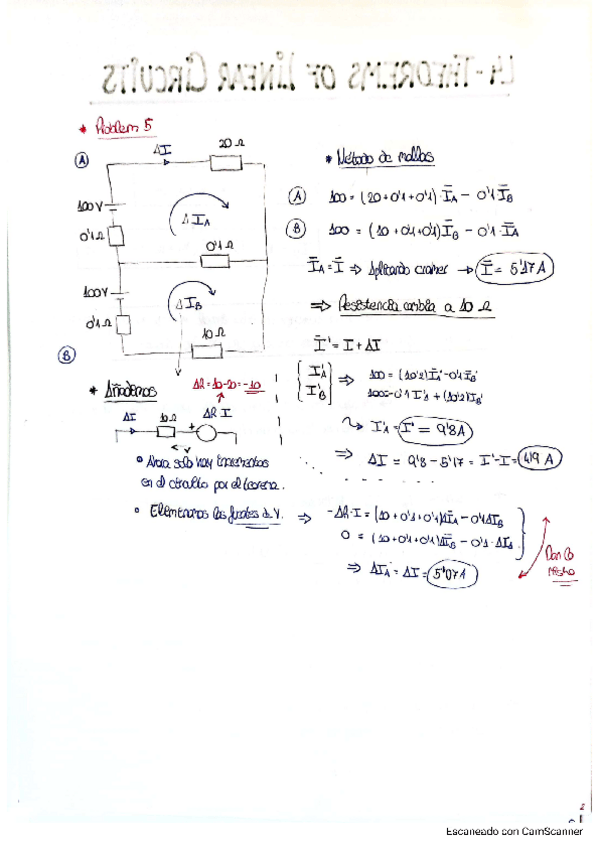 L4-THEOREMS OF LINEAR CIRCUITS
* Problem 5
A
ΔI
20 Ω
100 V
0'1 Ω
Δ I_A
0'1 Ω
100 V
0'1 Ω
Δ I_B
10 Ω
B
* Método de mallas
A 100 = (20 + 0'1 + 0'1) · Ī_A − 0'1 Ī_B
B 100 = (10 + 0'1 + 0'1) Ī_B − 0'1 · Ī_A
Ī_A = Ī ⇒ Aplicando cramer → Ī = 5'17 A
⇒ Resistencia cambia a 10 Ω
Ī' = I + ΔI
{ I'_A I'_B } ⇒ 100 = (10'2) Ī_A' − 0'1 Ī_B'
100 = −0'1 I'_A + (10'2) I_B'
↳ I'_A = I' = 9'8 A
⇒ ΔI = 9'8 − 5'17 = I' − I = 4'19 A
* Añademos
ΔR = 10 − 20 = −10
ΔI 10 Ω + ΔR I
• Ahora solo hay incrementos
en el circuito por el teorema.
• Eliminamos las fuentes de V.
⇒ −ΔR · I = (10 + 0'1 + 0'1) ΔI_A − 0'1 ΔI_B
0 = (10 + 0'1 + 0'1) ΔI_B − 0'1 · ΔI_A
⇒ ΔI_A = ΔI = 5'07 A
Dan lo
mismo
2
Escaneado con CamScanner